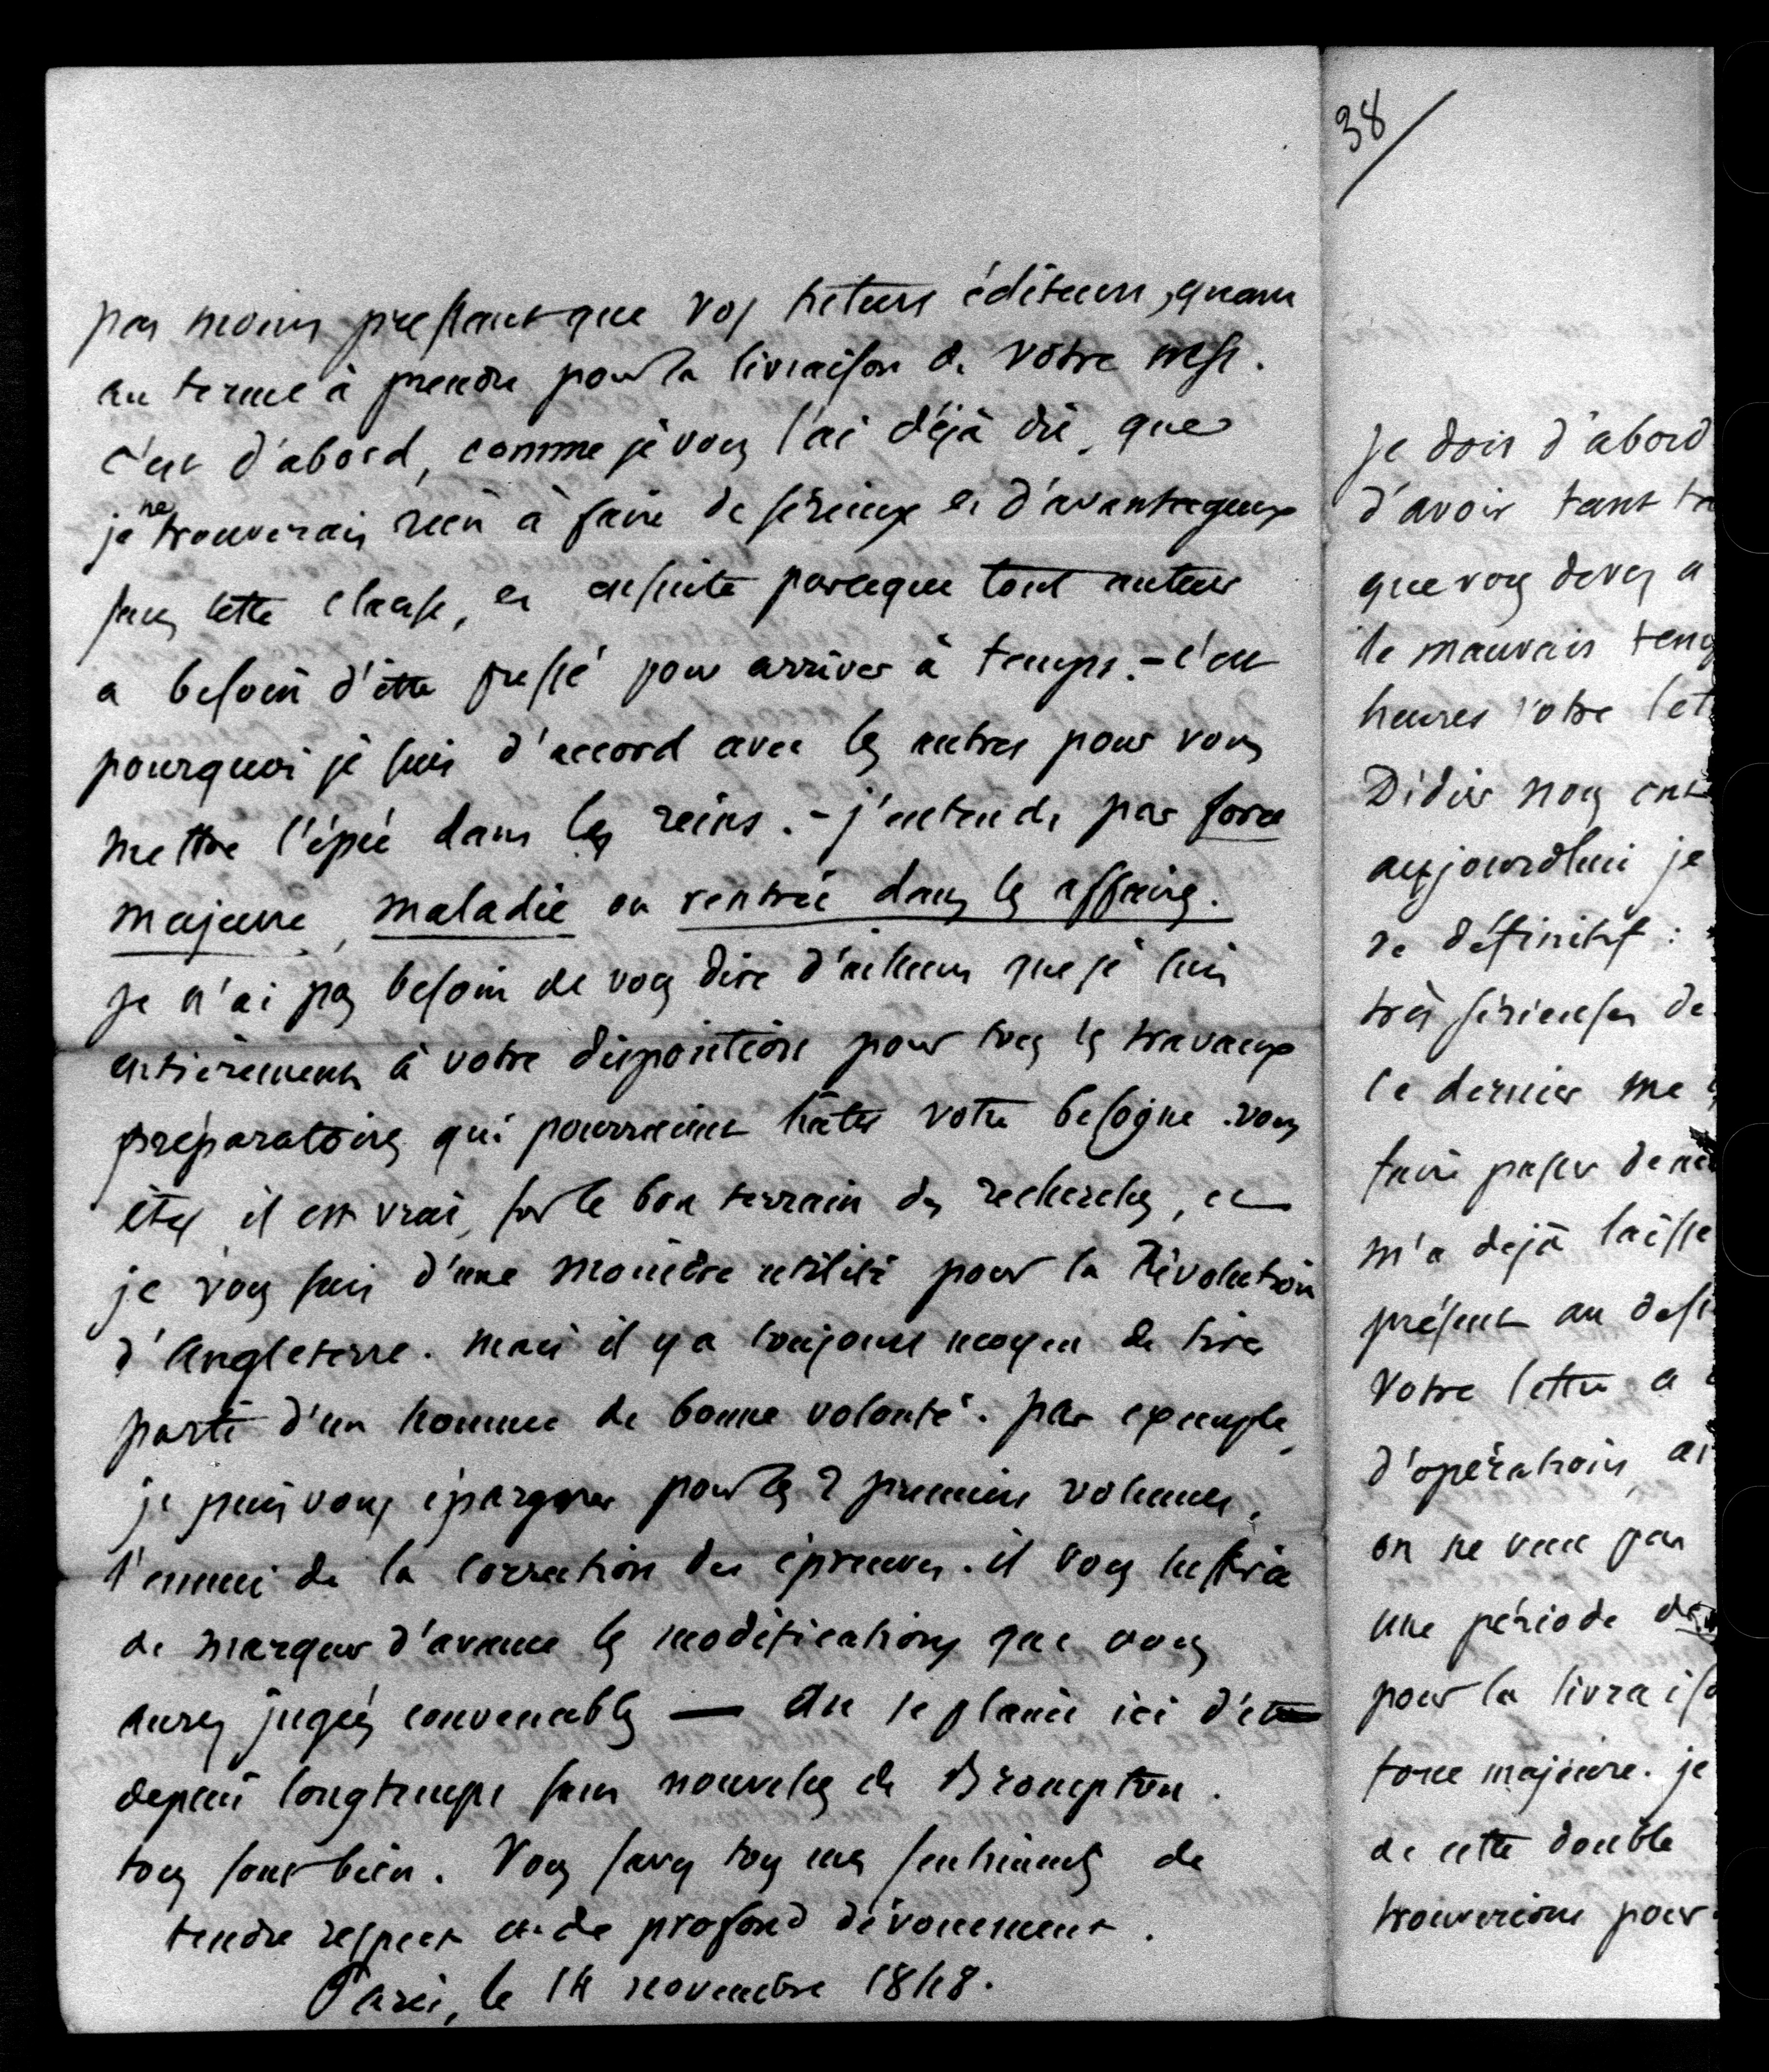 pas moins pressant que vos futurs éditeurs, quant
au terme à prendre pour la livraison de votre msc.
c'est d'abord, comme je vous l'ai déjà dit, que
je ne trouverais rien à faire de sérieux et d'avantageux
sans cette clause, et ensuite parceque tout auteur
a besoin d'être pressé pour arriver à temps. - c'est
pourquoi je suis d'accord avec les autres pour vous
mettre l'épée dans les reins. - j'entends par force
majeure, maladie ou rentrée dans les affaires.
je n'ai pas besoin de vous dire d'ailleurs que je suis
entièrement à votre disposition pour tous les travaux
préparatoires qui pourraient hâter votre besogne. vous
êtes, il est vrai, sur le bon terrain des recherches, et
je vous suis d'une moindre utilité pour la Révolution
d'Angleterre. mais il y a toujours moyen de tirer
parti d'un homme de bonne volonté. par exemple,
je puis vous épargner pour les 2 premiers volumes,
l'ennui de la correction des épreuves. il vous suffira
de marquer d'avance les modifications que vous
aurez jugées convenables — On se plaint ici d'être
depuis longtemps sans nouvelles de Brompton.
tous sont bien. Vous savez tous mes sentiments de
tendre respect et de profond dévouement.
Paris, le 14 novembre 1848.
38
je dois d'abord
d'avoir tant
que vous devez a
le mauvais
heures votre
Didier nous
aujourdhui je
de définitif :
très sérieuses de
ce dernier me
faire passer
m'a dejà laissé
présent au
Votre lettre a
d'opérations,
on ne veut pas
une période
pour la
force majeure. je
de cette double
trouverions pour